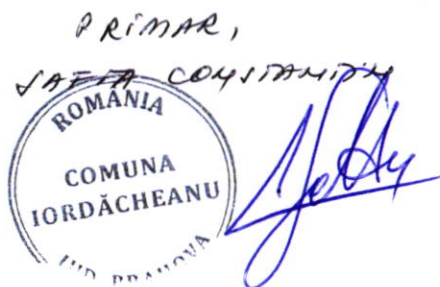 PRIMAR,
SAFTA CONSTANTIN
ROMÂNIA
COMUNA
IORDĂCHEANU
JUD. PRAHOVA